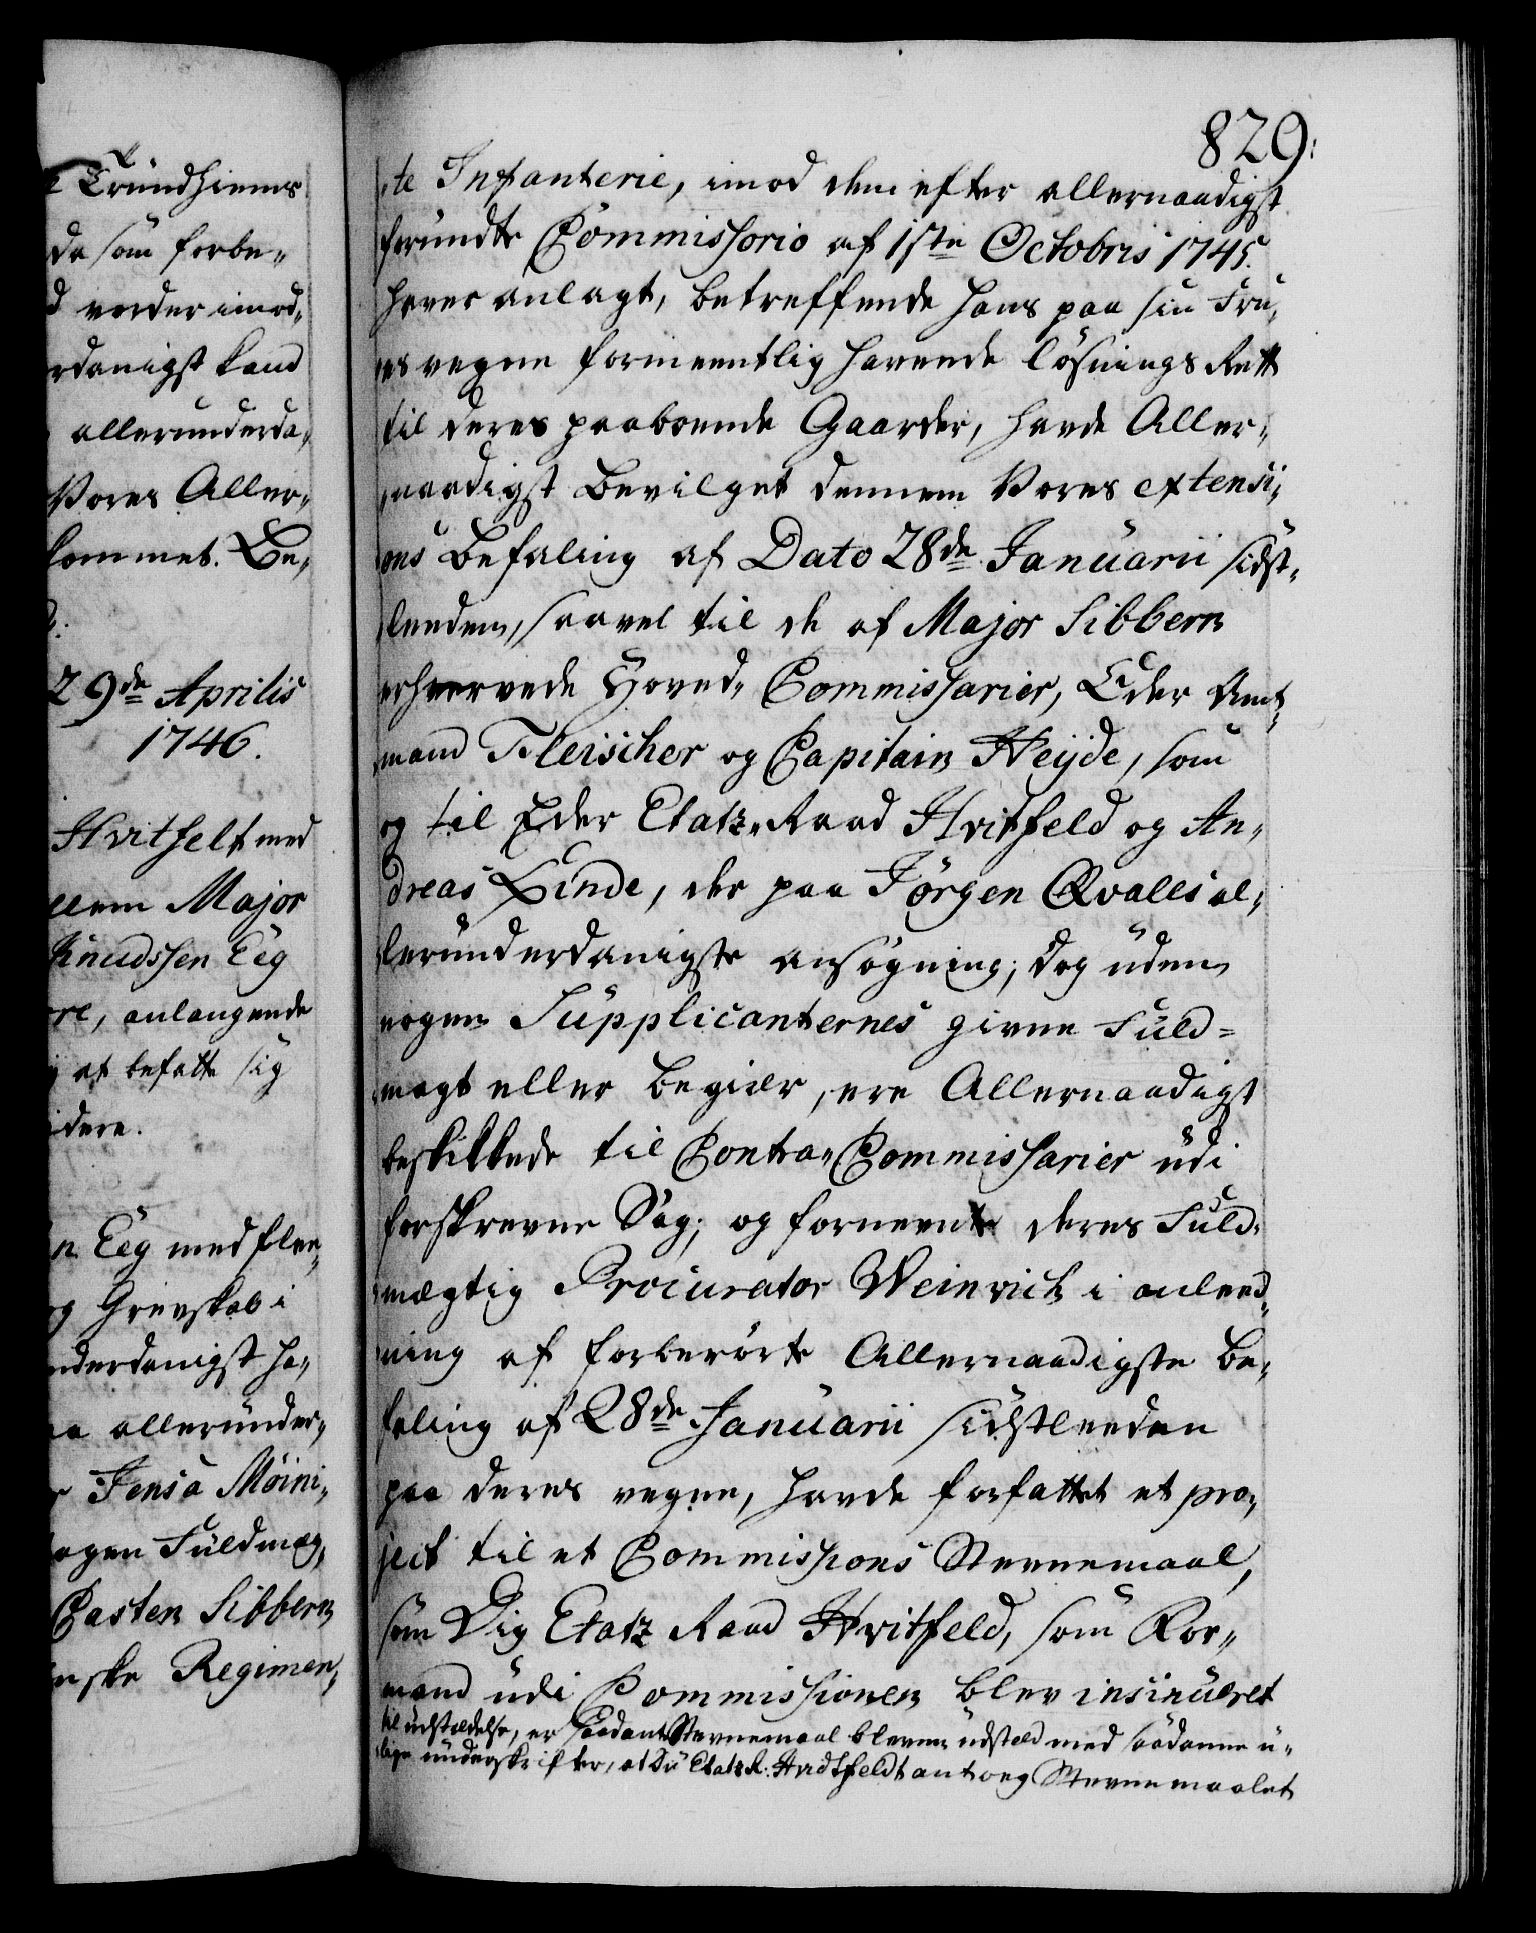 Trundhiems
da som forbe„
vorder imod„
rdanigst kand
allerunderda„
Vores Aller„
kommet. Be„
29de Aprilis
1746.
Hvitfelt med
Major
Knudssen Eeg
re, anlangende
at befatte sig
idere.
Eeg med flee„
Grevskab i
nderdanigst ha„
allerunder„
Jens â Møini„
Fuldmæg„
Casten Sibbern
ske Regimen„
829.
„te Infanterie, imod dem efter allernaadigst
forundte Commissorio af 1ste Octobris 1745.
haver anlagt, betreffende hans paa sin Fru„
es vegne formeentlig havende løsnings Rett
til deres paaboende Gaarder, havde Aller„
naadigst bevilget dennem Vores extensi„
ons Befaling af Dato 28de Januarii sidst„
leeden, saavel til de af Major Sibbern
erhvervede Hoved„ Commissarier, Eder Amt„
mand Fleischer og Capitain Heyde, som
og til Eder Etatz„ Raad Hvitfeld og An„
dreas Linde, der paa Jørgen Qvalls al„
lerunderdanigste ansøgning, dog uden
nogen Supplicanternes givne Fuld=
magt eller begiær, ere Allernaadigst
beskikkede til Contra„ Commissarier udi
forskrevne Sag; og fornevnte deres Fuld„
mægtig Procurator Weinrich i anleed„
ning af forberørte Allernaadigste Be„
faling af 28de Januarii sidstleeden
paa deres vegne, havde forfattet et pro„
ject til et Commissions Stevnemaal,
som Dig Etatz Raad Hvitfeld, som For„
mand udi Commissionen blev insinueret
til udstædelse, er saadant Stevnemaal bleven udstæd med saadanne u„
lige underskrifter, at Du Etatz R. Hvidtfeldt antoeg Stevnemaalet